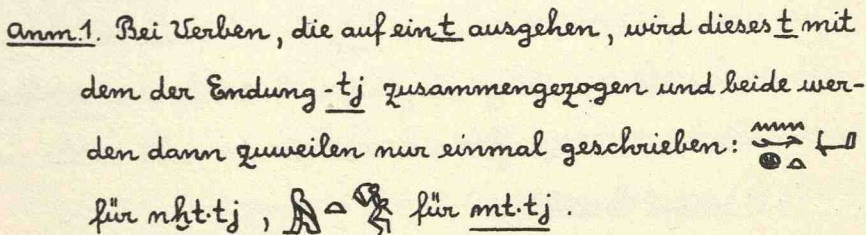 Anm.1. Bei Verben, die auf ein t ausgehen, wird dieses t mit
dem der Endung -tj zusammengezogen und beide wer-
den dann zuweilen nur einmal geschrieben:
für nḫt·tj , für mt·tj .